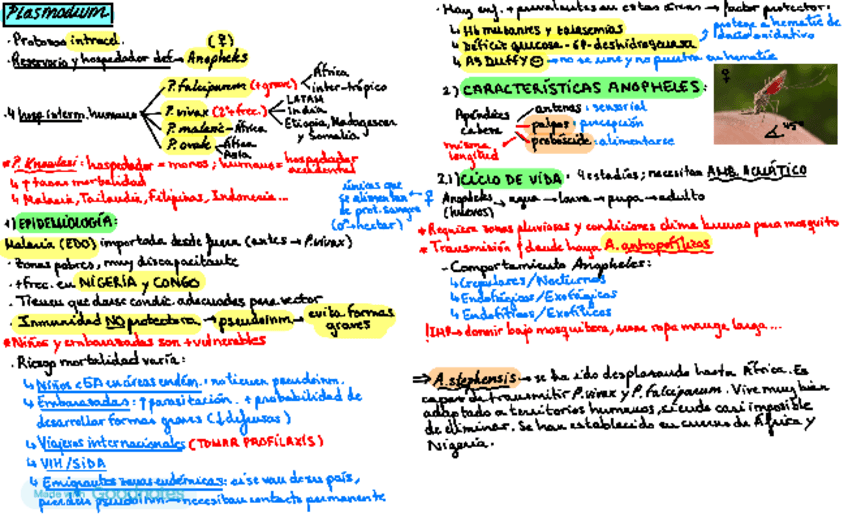 Plasmodium.
· Protozoo intracel. (♀)
· Reservorio y hospedador def → Anopheles
· 4 hosp interm. humanos
P. falciparum (+grave) África
inter-trópico
P. vivax (2º+frec.) LATAM
India
Etiopía, Madagascar
y Somalia
P. malarie - África
P. ovale África
Asia
* P. Knowlesi: hospedador = monos; humanos = hospedador
accidental
↳ ↑ tasas mortalidad
↳ Malasia, Tailandia, Filipinas, Indonesia...
1) EPIDEMIOLOGÍA:
Malaria (EDO) importada desde fuera (antes → P. vivax)
· Zonas pobres, muy discapacitante
· +frec. en NIGERIA y CONGO
· Tienen que darse condic. adecuadas para vector
· Inmunidad NO protectora → pseudoinm. → evita formas
graves
* Niños y embarazadas son + vulnerables
· Riesgo mortalidad varía:
↳ Niños <5A en áreas endém.: no tienen pseudoinm.
↳ Embarazadas: ↑ parasitación. + probabilidad de
desarrollar formas graves (↓ defensas)
↳ Viajeros internacionales (TOMAR PROFILAXIS)
↳ VIH/SIDA
↳ Emigrantes zonas endémicas: si se van de su país,
pierden pseudoinm → necesitan contacto permanente
Made with Goodnotes
· Hay enf. + prevalentes en estas áreas → factor protector:
↳ Hb mutantes y talasemias
protege a hematíe de
daño oxidativo
↳ Déficit glucosa-6P-deshidrogenasa
↳ AgDuffy ⊖ → no se une y no penetra en hematíe
2) CARACTERÍSTICAS ANOPHELES:
Apéndices
cabeza
antenas: sensorial
palpos: percepción
probóscide: alimentarse
misma
longitud
♀
45°
2.1) CICLO DE VIDA · 4 estadíos; necesitan AMB. ACUÁTICO
únicas que
se alimentan
de prot. sangre
(♂ → néctar)
← ♀
Anopheles → agua → larva → pupa → adulto
(huevos)
* Requiere zonas pluviosas y condiciones clima buenas para mosquito
* Transmisión ↑ donde haya A. antropofílicos
- Comportamiento Anopheles:
↳ Crepusculares/Nocturnos
↳ Endofágicos/Exofágicos
↳ Endofílicos/Exofílicos
! IMP → dormir bajo mosquitera, usar ropa manga larga...
⇒ A. stephensis → se ha ido desplazando hasta África. Es
capaz de transmitir P. vivax y P. falciparum. Vive muy bien
adaptado a territorios humanos, siendo casi imposible
de eliminar. Se han establecido en cuerno de África y
Nigeria.